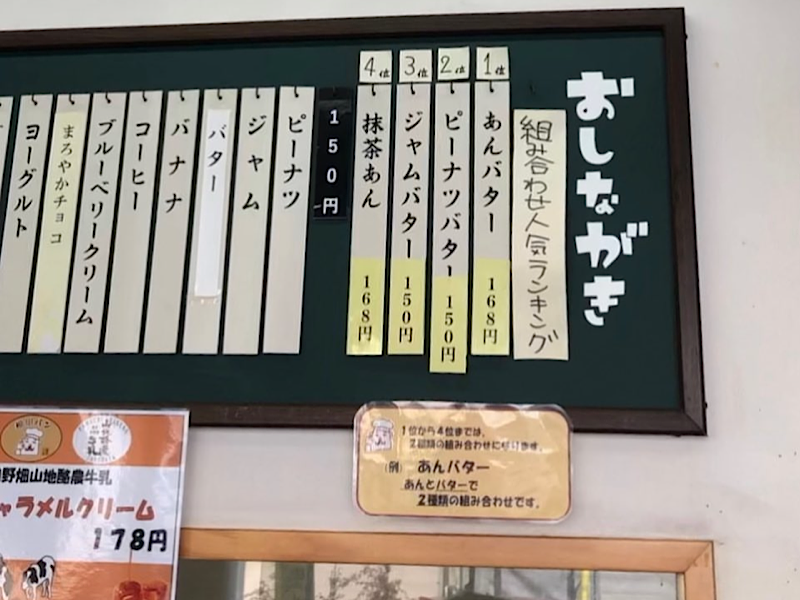 おしながき
組み合わせ人気ランキング
1位
あんバター
168円
2位
ピーナツバター
150円
3位
ジャムバター
150円
4位
抹茶あん
168円
150円
ピーナツ
ジャム
バター
バナナ
コーヒー
ブルーベリークリーム
まろやかチョコ
ヨーグルト
1位から4位までは、
2種類の組み合わせになります。
(例) あんバター
あんとバターで
2種類の組み合わせです。
野畑山地酪農牛乳
ャラメルクリーム
178円